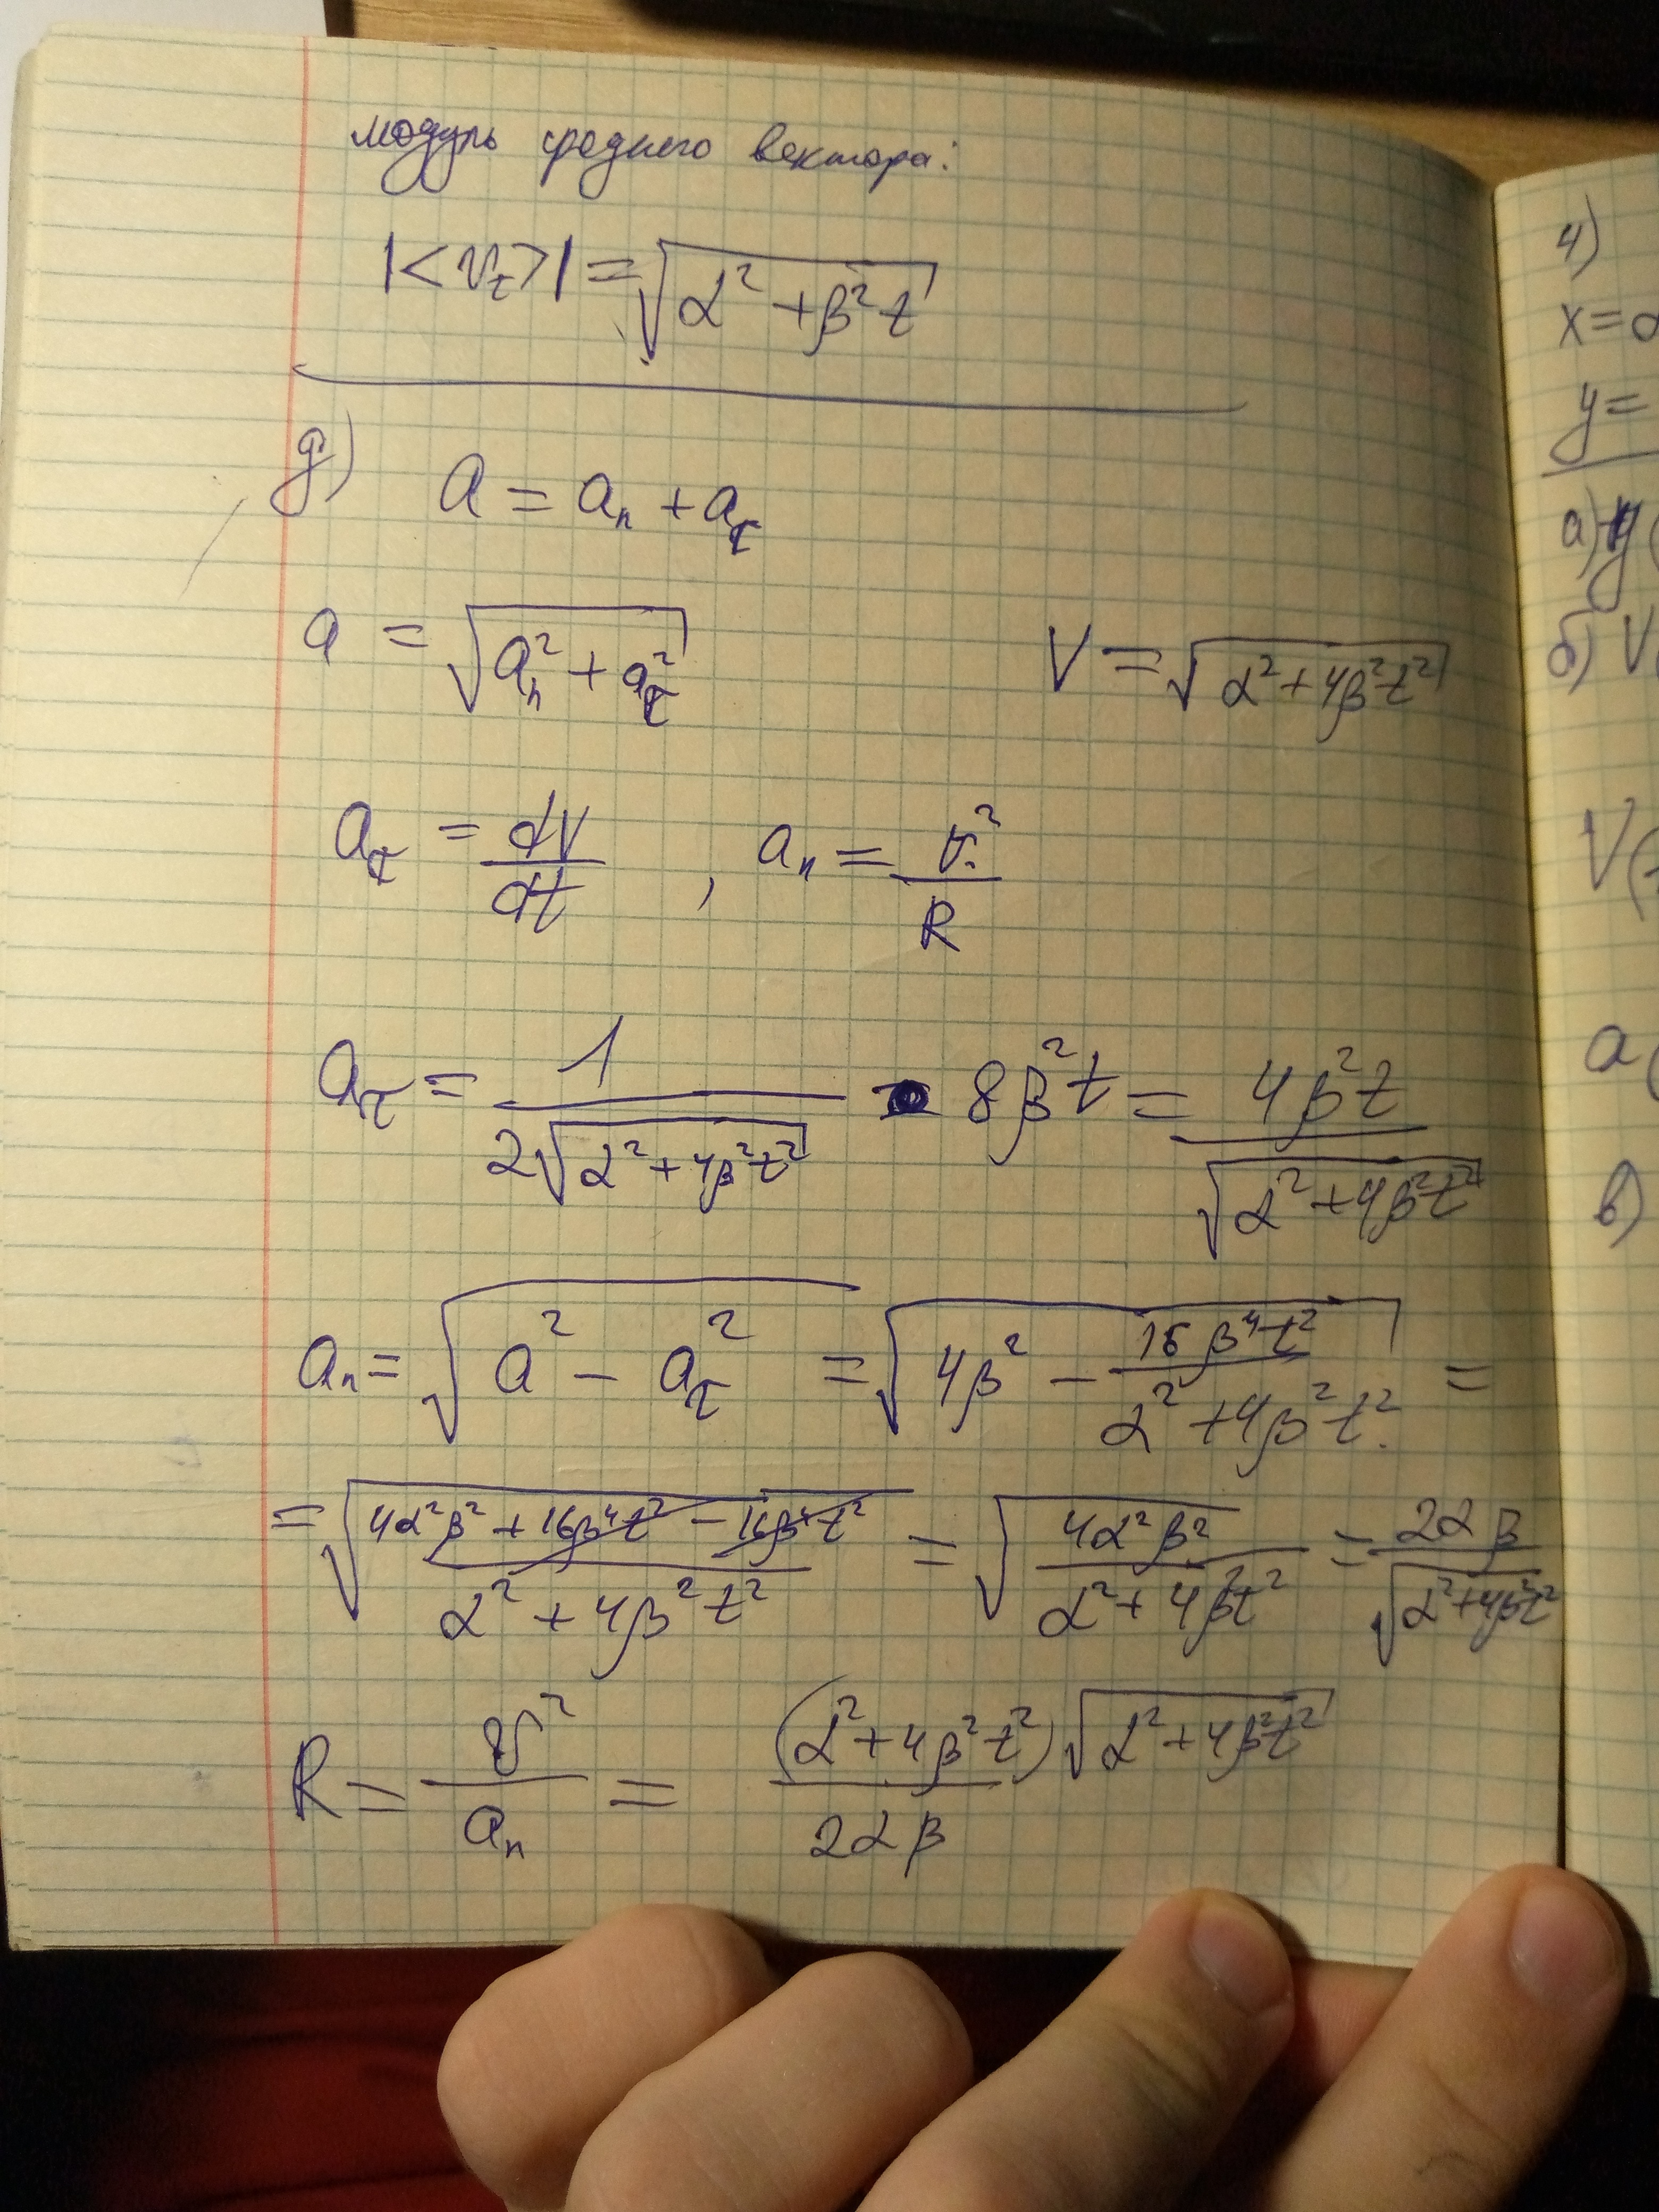 модуль среднего вектора:
|<v_t>| = √(α² + β²t)
д) a = a_n + a_τ
a = √(a_n² + a_τ²)    V = √(α² + 4β²t²)
a_τ = dV/dt , a_n = v²/R
a_τ = 1/(2√(α² + 4β²t²)) · 8β²t = 4β²t/√(α² + 4β²t²)
a_n = √(a² − a_τ²) = √(4β² − 16β⁴t²/(α² + 4β²t²)) =
= √((4α²β² + 16β⁴t² − 16β⁴t²)/(α² + 4β²t²)) = √(4α²β²/(α² + 4β²t²)) = 2αβ/√(α² + 4β²t²)
R = v²/a_n = (α² + 4β²t²)√(α² + 4β²t²)/(2αβ)
4)
x = α
y =
а) y(
б) V
V(
a(
в)